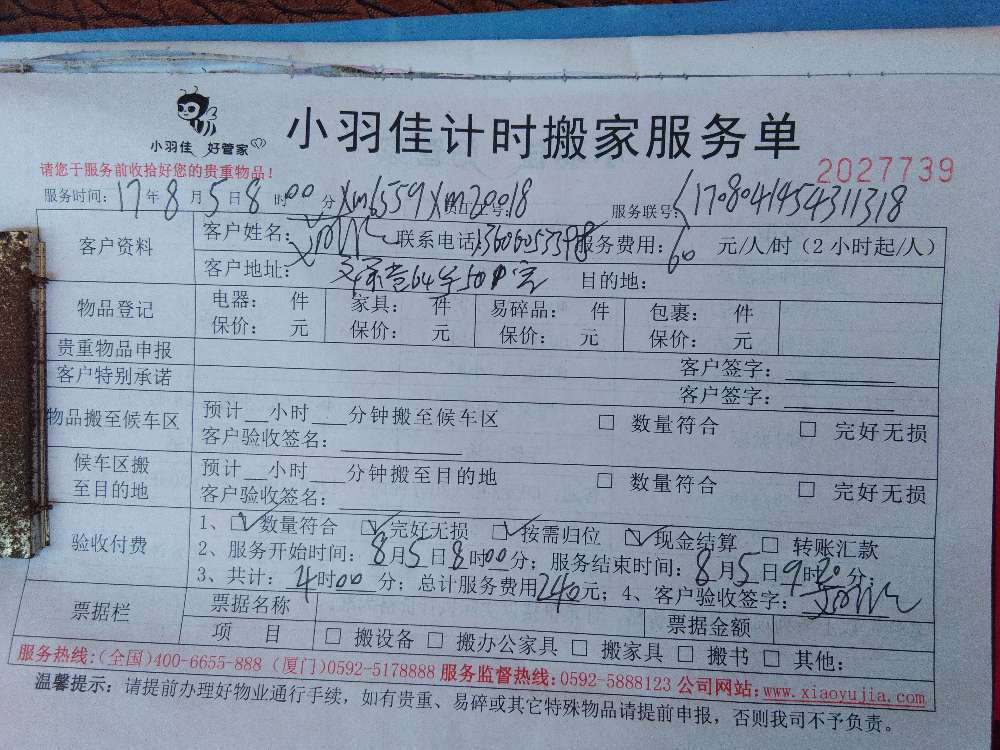 小羽佳 好管家
小羽佳计时搬家服务单
2027739
请您于服务前收拾好您的贵重物品!
服务时间: 17年8月5日8时00分 Xm6559 Xm20018 服务联号: 1708041454311318
客户资料
客户姓名: 联系电话 服务费用: 60 元/人/时 (2小时起/人)
客户地址: 目的地:
物品登记
电器: 件 家具: 件 易碎品: 件 包裹: 件
保价: 元 保价: 元 保价: 元 保价: 元
贵重物品申报 客户签字:
客户特别承诺 客户签字:
物品搬至候车区
预计__小时___分钟搬至候车区 □ 数量符合 □ 完好无损
客户验收签名:
候车区搬至目的地
预计__小时___分钟搬至目的地 □ 数量符合 □ 完好无损
客户验收签名:
验收付费
1、☑数量符合 ☑完好无损 ☑按需归位 ☑现金结算 □ 转账汇款
2、服务开始时间: 8月5日8时00分; 服务结束时间: 8月5日9时20分;
3、共计: 4时00分; 总计服务费用240元; 4、客户验收签字:
票据栏
票据名称 票据金额
项 目 □ 搬设备 □ 搬办公家具 □ 搬家具 □ 搬书 □ 其他:
服务热线:(全国)400-6655-888 (厦门)0592-5178888 服务监督热线:0592-5888123 公司网站:www.xiaoyujia.com
温馨提示: 请提前办理好物业通行手续, 如有贵重、易碎或其它特殊物品请提前申报, 否则我司不予负责。